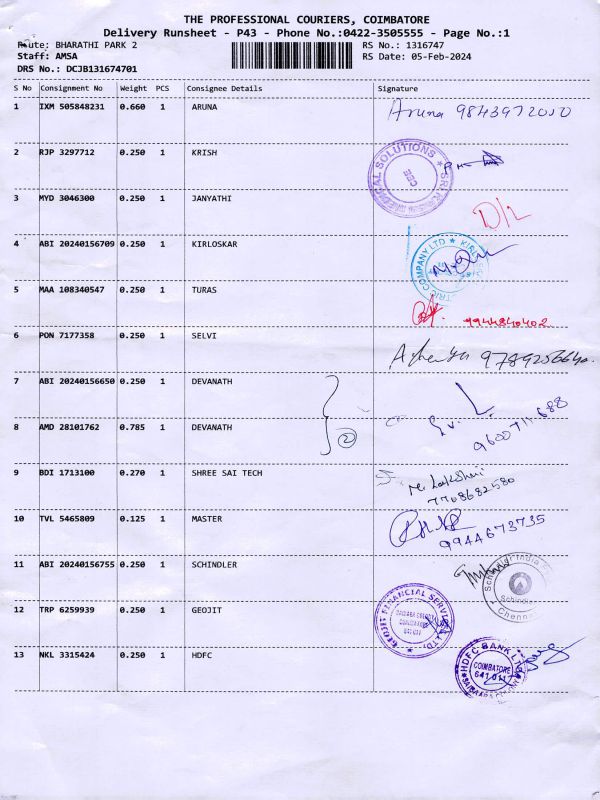 THE PROFESSIONAL COURIERS, COIMBATORE
Delivery Runsheet - P43 - Phone No.:0422-3505555 - Page No.:1
Route: BHARATHI PARK 2 RS No.: 1316747
Staff: AMSA RS Date: 05-Feb-2024
DRS No.: DCJB131674701
S No Consignment No Weight PCS Consignee Details Signature
1 IXM 505848231 0.660 1 ARUNA Aruna 9843972000
2 RJP 3297712 0.250 1 KRISH
MEDICAL SOLUTIONS ★ SRI
CBE
3 MYD 3046300 0.250 1 JANYATHI D/L
4 ABI 20240156709 0.250 1 KIRLOSKAR
COMPANY LTD ★ KIRL
5 MAA 108340547 0.250 1 TURAS 9944840402
6 PON 7177358 0.250 1 SELVI
7 ABI 20240156650 0.250 1 DEVANATH
8 AMD 28101762 0.785 1 DEVANATH 2 9600711688
9 BDI 1713100 0.270 1 SHREE SAI TECH M. Lakshmi
7708682580
10 TVL 5465809 0.125 1 MASTER 9944673735
11 ABI 20240156755 0.250 1 SCHINDLER
Schindler India
Schindler
Chennai
12 TRP 6259939 0.250 1 GEOJIT
GEOJIT FINANCIAL SERVICES LTD.
13 NKL 3315424 0.250 1 HDFC
HDFC BANK LTD
COIMBATORE
641 011